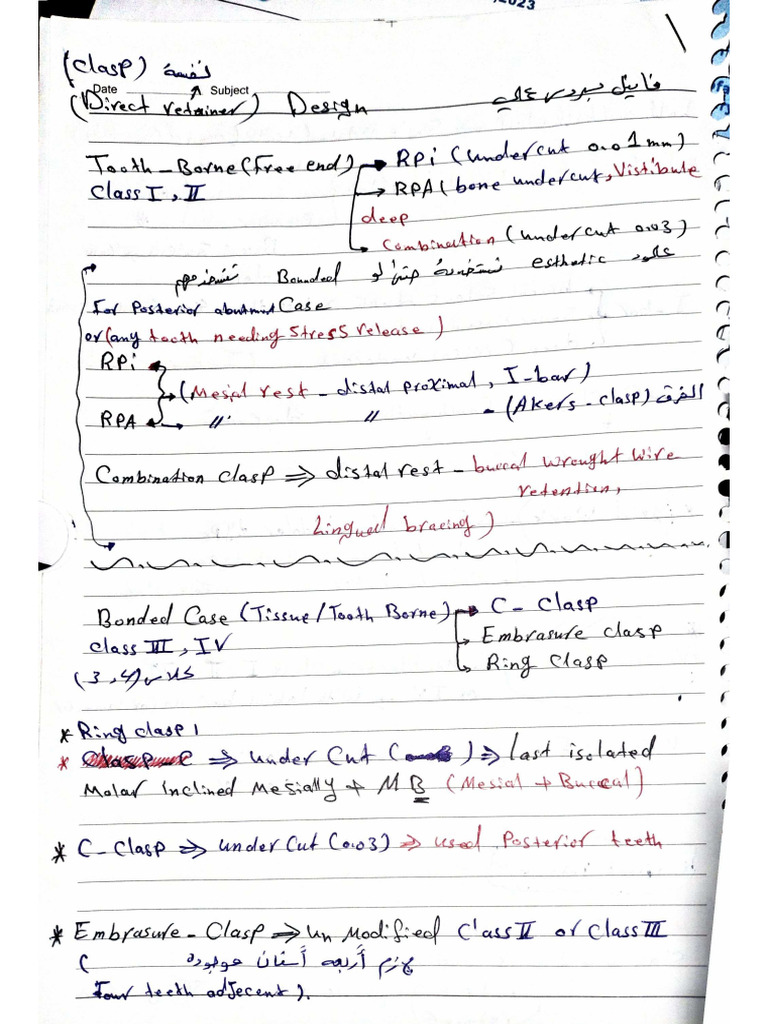 2023
(Clasp) نفسه
Date Subject
(Direct retainer) Design
Tooth-Borne (free end) → RPi (undercut 0.01mm)
Class I, II → RPA (bone undercut, Vistibule
deep
→ Combination (undercut 0.03)
Bounded esthetic
For Posterior abutment Case
or (any tooth needing Stress release)
RPi
(Mesial rest - distal proximal, I-bar)
RPA → " " - (Akers-clasp) الفرق
Combination clasp ⇒ distal rest - buccal wrought wire
retention,
Lingual bracing)
Bonded Case (Tissue/Tooth Borne) → C-Clasp
Class III, IV → Embrasure clasp
كلاس (3,4) → Ring Clasp
* Ring clasp
* ⇒ under Cut ⇒ last isolated
Molar Inclined Mesially + MB (Mesial + Buccal)
* C-Clasp ⇒ under Cut (0.03) ⇒ used Posterior teeth
* Embrasure-Clasp ⇒ un Modified Class II or Class III
( لازم أربعه أسنان موجوده
Four teeth adjecent).